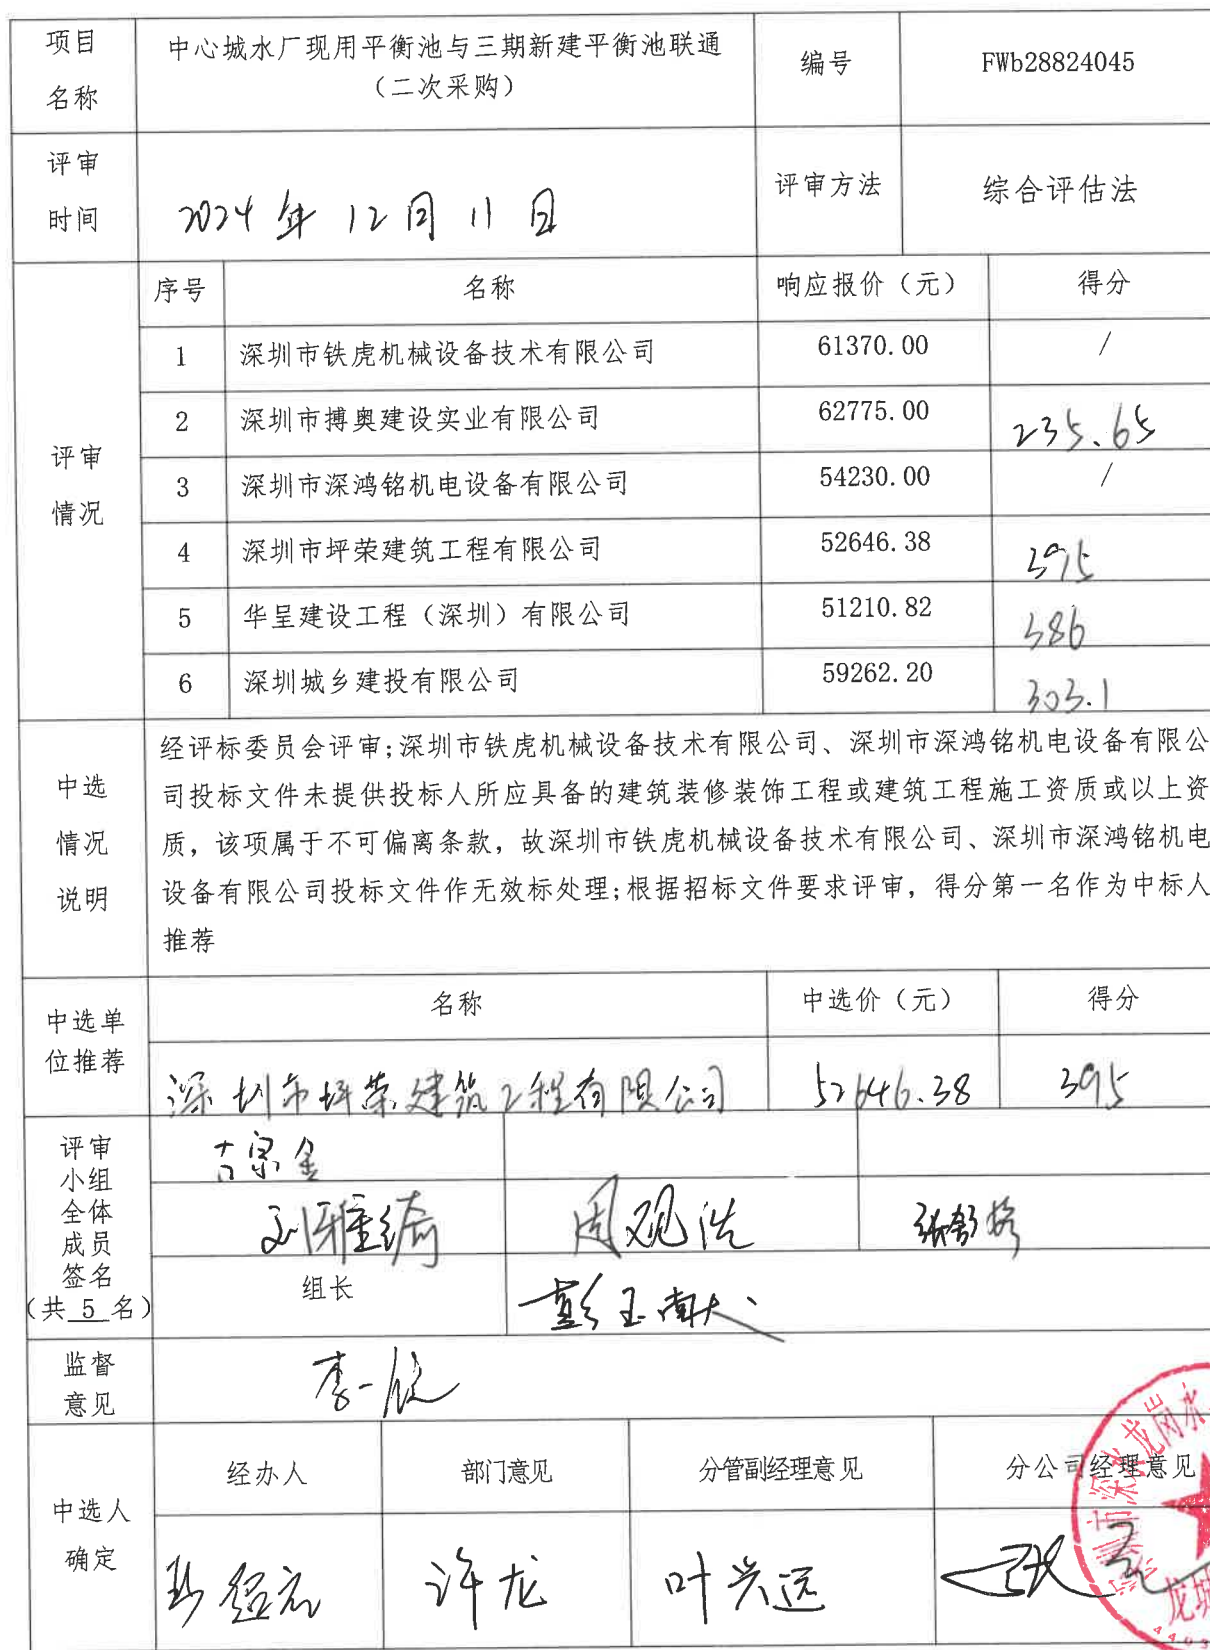 项目名称 中心城水厂现用平衡池与三期新建平衡池联通（二次采购） 编号 FWb28824045
评审时间 2024年12月11日 评审方法 综合评估法
评审情况
序号 名称 响应报价（元） 得分
1 深圳市铁虎机械设备技术有限公司 61370.00 /
2 深圳市搏奥建设实业有限公司 62775.00 235.65
3 深圳市深鸿铭机电设备有限公司 54230.00 /
4 深圳市坪荣建筑工程有限公司 52646.38 395
5 华呈建设工程（深圳）有限公司 51210.82 386
6 深圳城乡建投有限公司 59262.20 303.1
中选情况说明
经评标委员会评审;深圳市铁虎机械设备技术有限公司、深圳市深鸿铭机电设备有限公
司投标文件未提供投标人所应具备的建筑装修装饰工程或建筑工程施工资质或以上资
质，该项属于不可偏离条款，故深圳市铁虎机械设备技术有限公司、深圳市深鸿铭机电
设备有限公司投标文件作无效标处理;根据招标文件要求评审，得分第一名作为中标人
推荐
中选单位推荐
名称 中选价（元） 得分
深圳市坪荣建筑工程有限公司 52646.38 395
评审小组全体成员签名（共 5 名）
古泉金
刘雅绮 周观浩
组长
监督意见 李一欣
中选人确定
经办人 部门意见 分管副经理意见 分公司经理意见
许龙 叶兴远